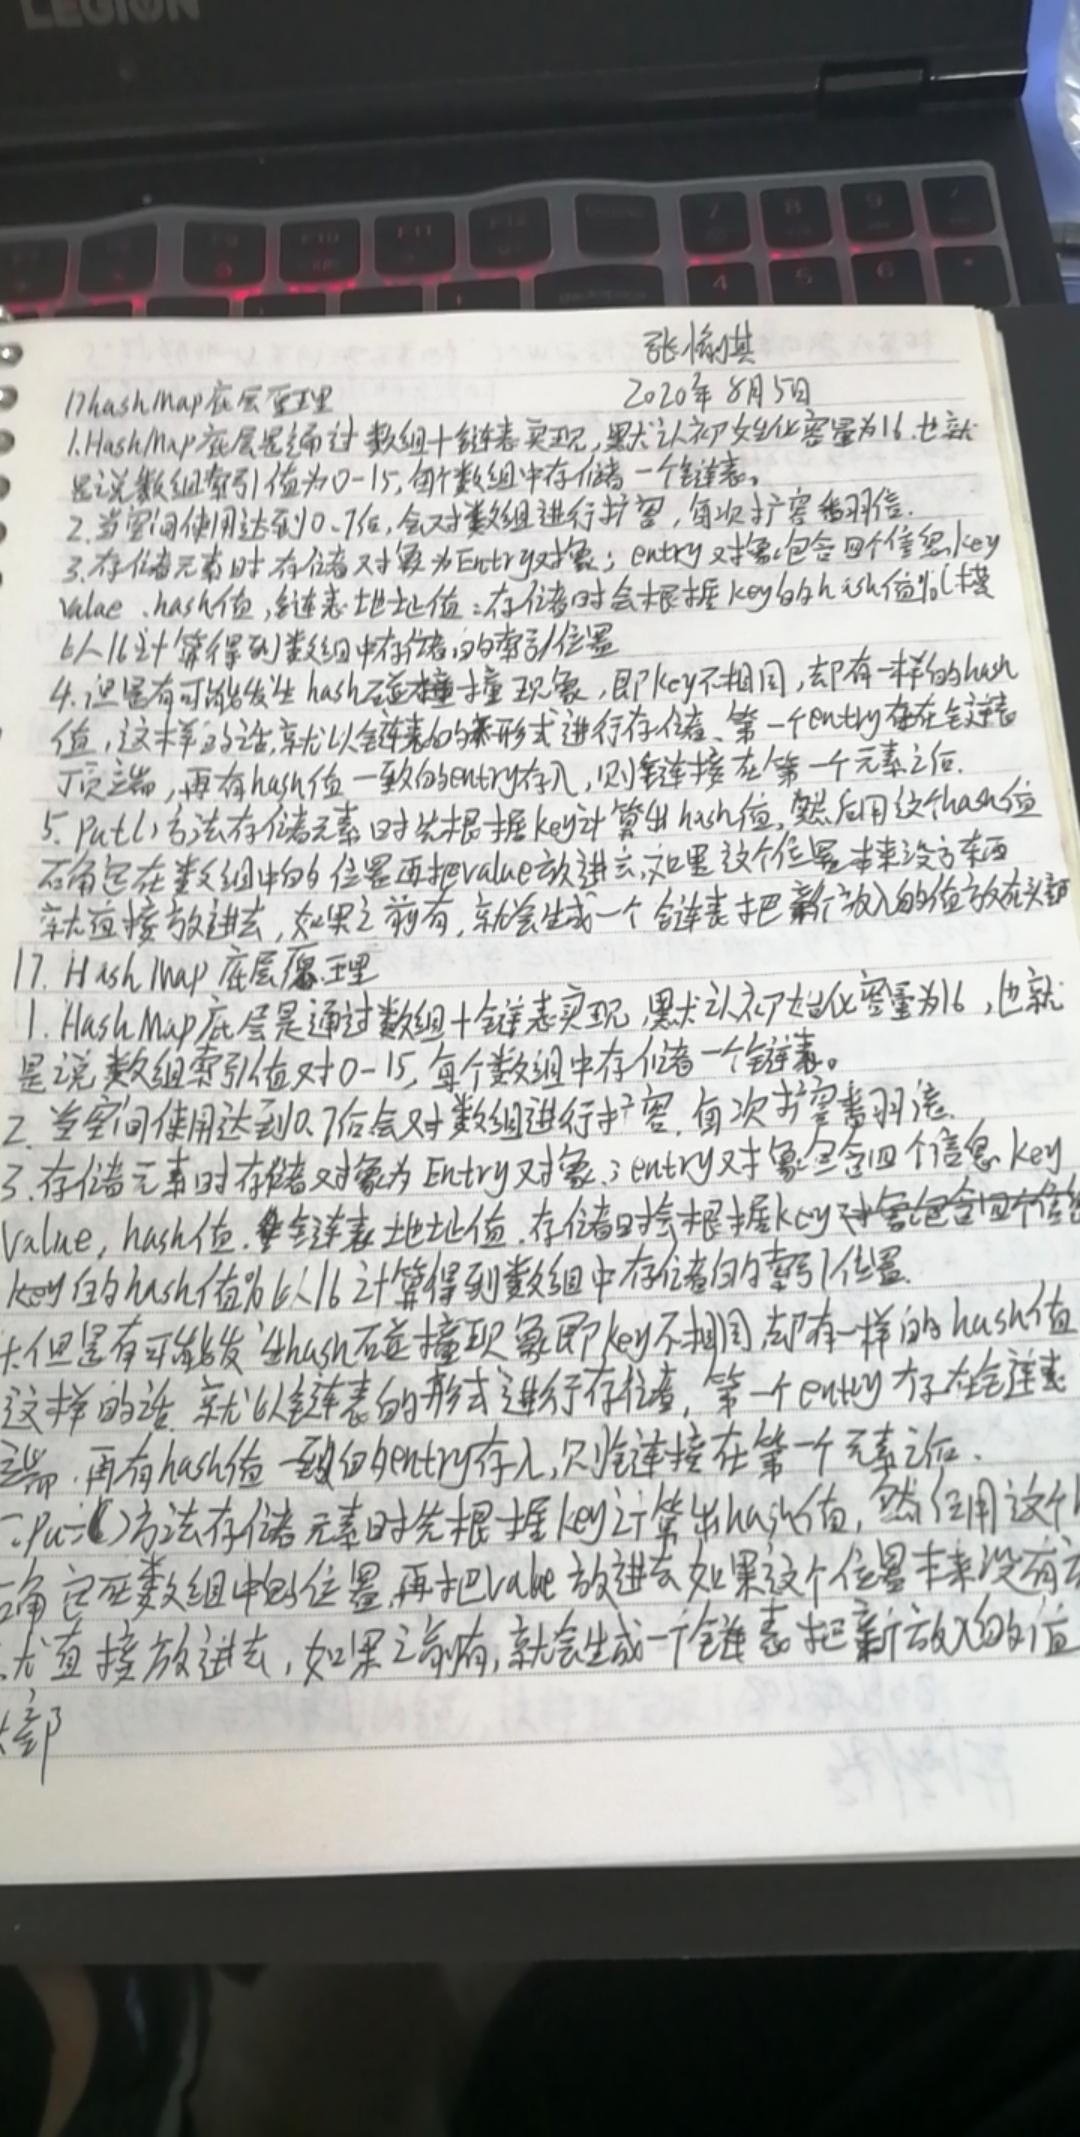 LEGION
F9 F10 F11 F12 7 8 9
4 5 6
张
2020年8月5日
17hashMap底层原理
1.HashMap底层是通过数组+链表实现,默认初始化容量为16.也就
是说数组索引值为0-15,每个数组中存储着一个链表。
2.当空间使用达到0.7后,会对数组进行扩容,每次扩容番羽倍.
3.存储元素时存储对象为Entry对象;entry对象包含四个信息key
value、hash值,链表地址值:存储时会根据key的hash值%(模
以16计算得到数组中存储的索引位置
4.但是有可能发生hash碰撞现象,即key不相同,却有一样的hash
值,这样的话,就以链表的形式进行存储、第一个entry存在链表
顶端,再有hash值一致的entry存入,则会连接在第一个元素之后.
5.Put()方法存储元素时先根据key计算出hash值,然后用这个hash值
石角定在数组中的位置再把value放进去,如果这个位置本来没东西
就直接放进去,如果之前有,就会生成一个链表把新放入的值放在头部
17.HashMap底层原理
1.HashMap底层是通过数组+链表实现,默认初始化容量为16,也就
是说数组索引值对0-15,每个数组中存储着一个链表。
2.当空间使用达到0.7后会对数组进行扩容.每次扩容番羽倍.
3.存储元素时存储对象为Entry对象;entry对象包含四个信息key
value,hash值.链表地址值.存储时会根据key对象包含四个信息
key的hash值%以16计算得到数组中存储的索引位置.
但是有可能发生hash碰撞现象即key不相同,却有一样的hash值
这样的话.就以链表的形式进行存储,第一个entry存在链表
端.再有hash值一致的entry存入,则会连接在第一个元素之后.
Put()方法存储元素时先根据key计算出hash值,然后用这个
角定在数组中的位置,再把value放进去如果这个位置本来没有
直接放进去,如果之前有,就会生成一个链表把新放入的值
部